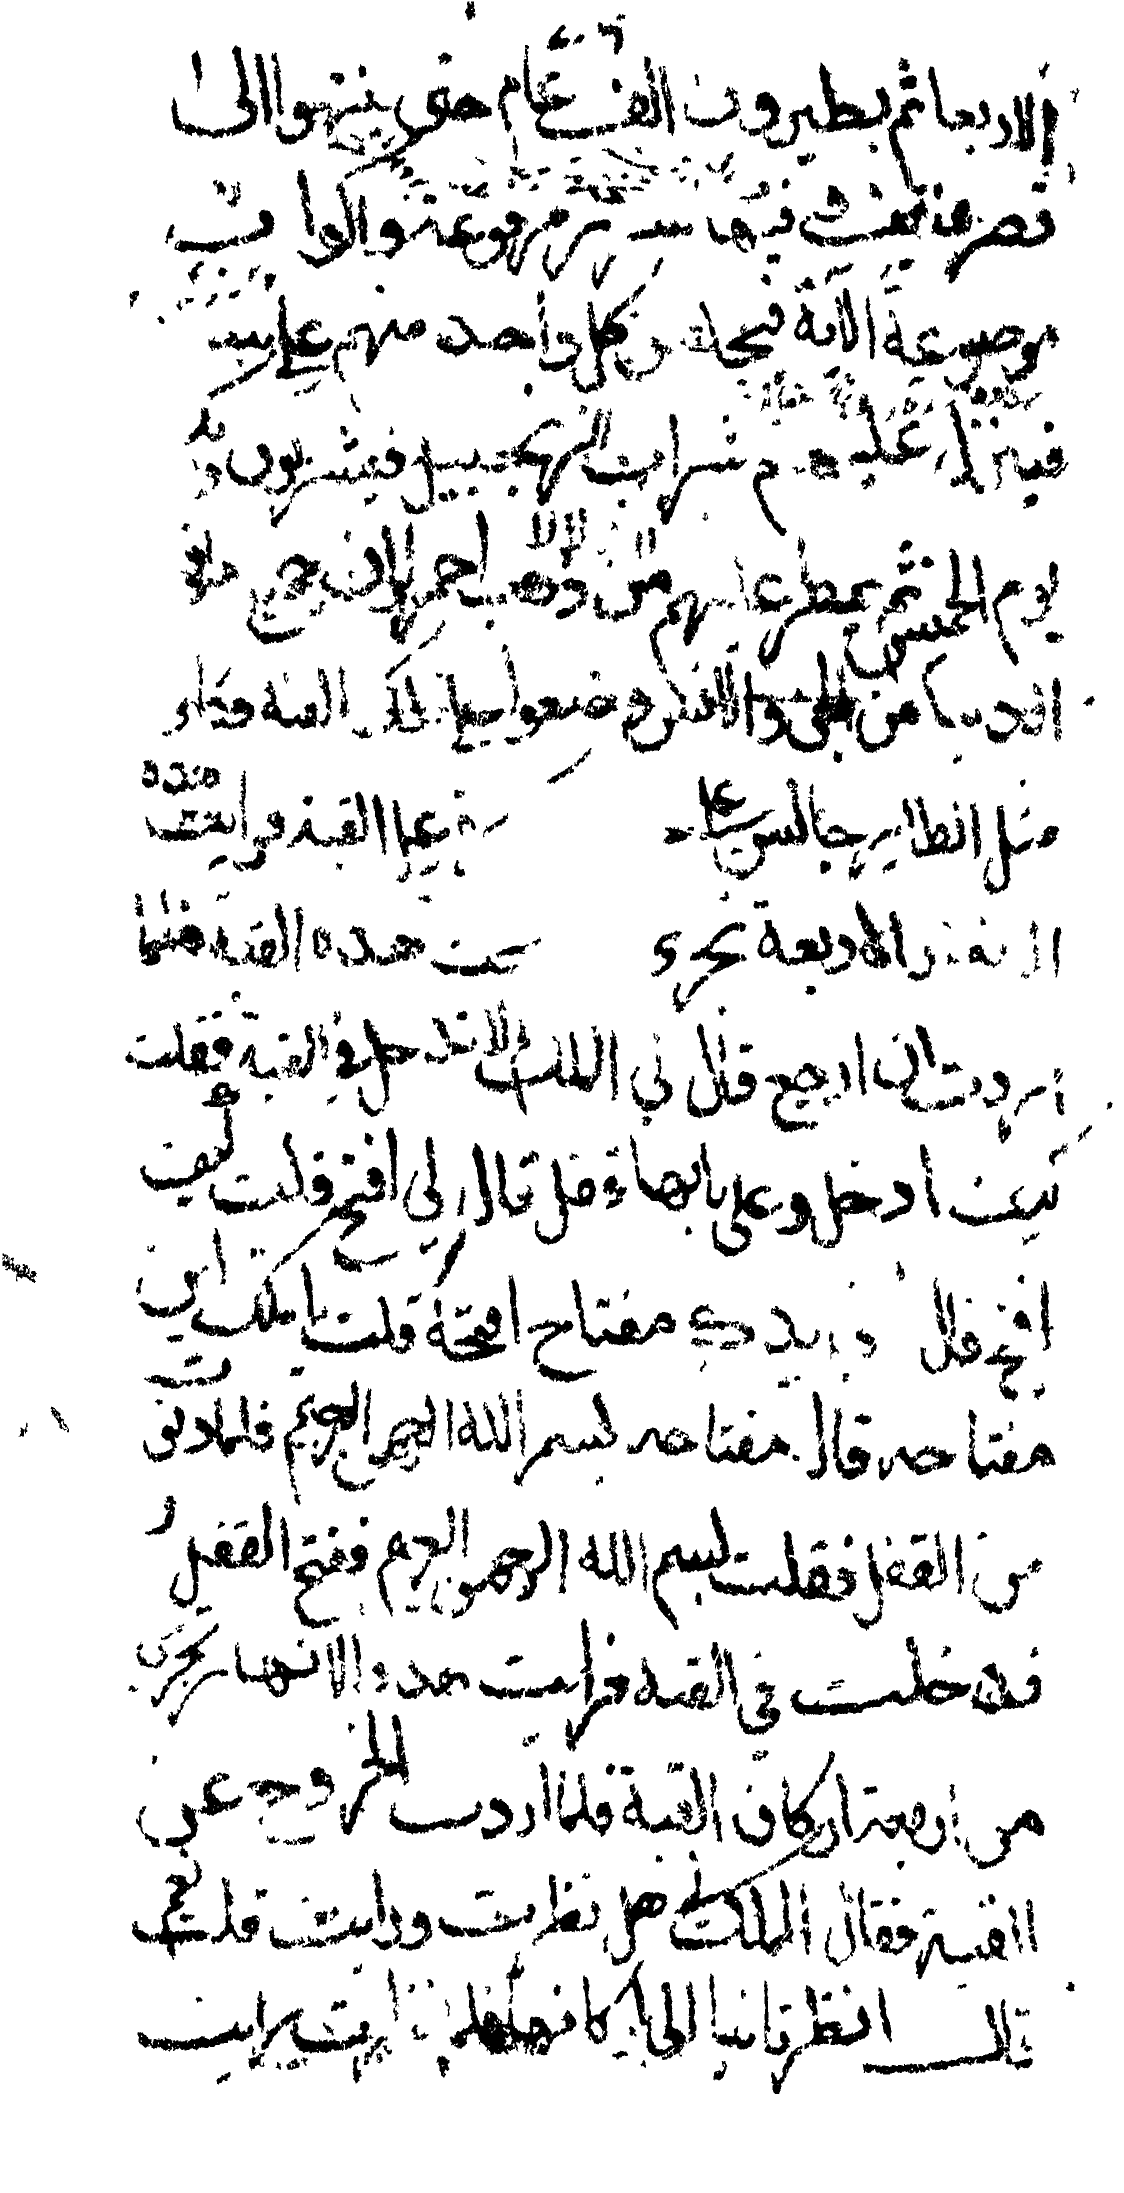 الاربعا ثم يطيرون الف عام حتى ينتهوا الى
قصر فيها سرر مرفوعة واكواب
موضوعة الآية فيجلس كل واحد منهم على سرير
فينزل عليهم شراب الزنجبيل فيشربون وذلك
يوم الخميس ثم يمطر عليهم من ذهب احمر لان جميع ما في
الدنيا من الجن والانس وضعوا على تلك القبة فداء
مثل الطاير جالس على فيما القبة فرايت هذه
الانهار الاربعة تجرى من تحت هذه القبة فلما
اردت ان ارجع قال لي الملك لم لا تدخل في القبة فقلت
كيف ادخل وعلى بابها قفل قال لي افتح قلت كيف
افتح قال في يدك مفتاح افتحه قلت يا ملك اين
مفتاحه قال مفتاحه بسم الله الرحمن الرحيم فلما دنوت
من القفل فقلت بسم الله الرحمن الرحيم ففتح القفل
فدخلت في القبة فرايت هذه الانهار تجرى
من اربعة اركان القبة فلما اردت الخروج عن
القبة فقال الملك هل نظرت ورايت قلت نعم
قال انظر ثانيا الى اركانها فلما نظرت رايت